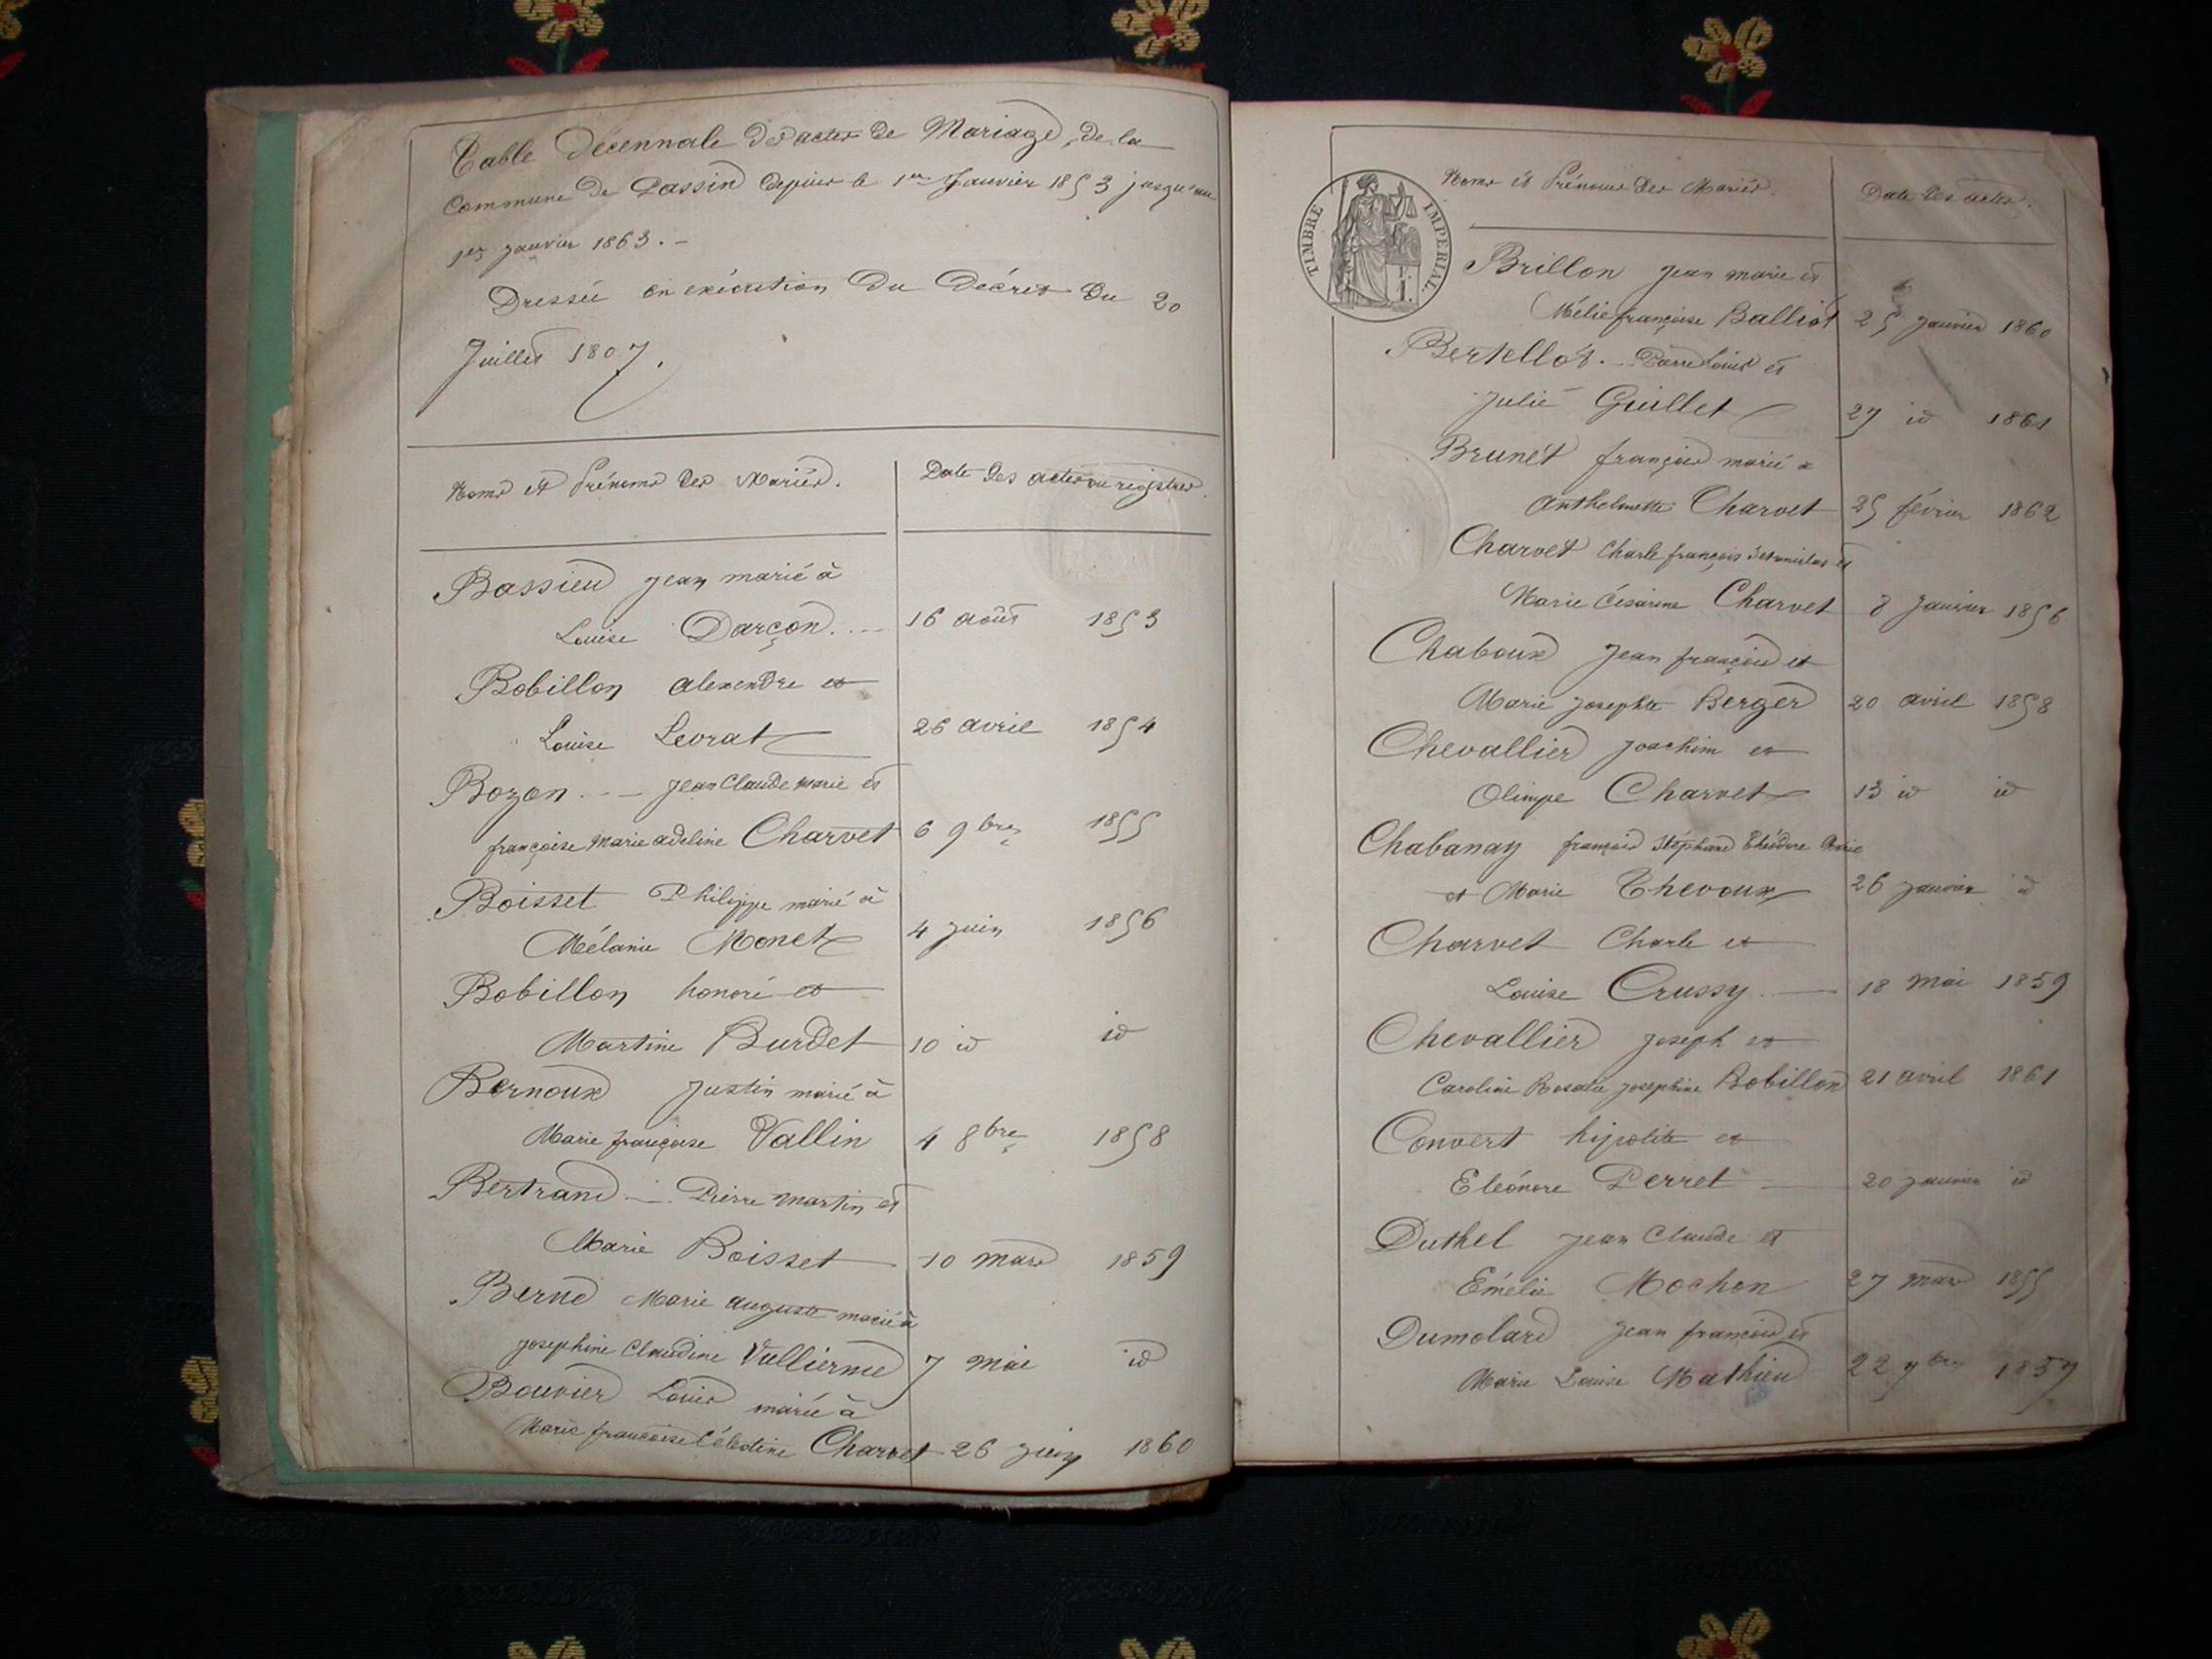 Table Décennale des actes de Mariage, de la
Commune de Passin depuis le 1er Janvier 1853 jusqu'au
1er janvier 1863. -
Dressée en exécution du Décret du 20
Juillet 1807.
Noms et Prénoms des Mariés.
Date des actes au registres.
Bassieu Jean marié à
Louise Darçon. 16 août 1853
Bobillon alexendre et
Louise Levrat 26 avril 1854
Bozon. - Jean Claude Marie et
françoise Marie adeline Charvet 6 9bre 1855
Boisset Philippe marié à
Mélanie Monet 4 juin 1856
Bobillon honoré et
Martine Burdet 10 id id
Bernoux Justin marié à
Marie françoise Vallin 4 8bre 1858
Bertrand - Pierre Martin et
Marie Boisset 10 mars 1859
Berne Marie auguste marié à
josephine Claudine Vullierme 7 mai id
Bouvier Louis marié à
Marie françoise Célestine Charvet 26 juin 1860
TIMBRE IMPERIAL.
Noms et Prénoms des Mariés.
Date des actes.
Brillon Jean marie et
Mélie françoise Balliot 25 janvier 1860
Bertellot. - Pierre Louis et
Julie Guillet 27 id 1861
Brunet françois marié à
Anthelmette Charvet 25 février 1862
Charvet Charle françois et
Marie Césarine Charvet 8 janvier 1856
Chaboux Jean françois et
Marie Josephte Berger 20 avril 1858
Chevallier Joachim et
Olimpe Charvet 13 id id
Chabanay françois Stéphane Théodore Marie
et Marie Thevoux 26 janvier id
Charvet Charle et
Louise Crussy 18 mai 1859
Chevallier Joseph et
Caroline Rosalie josephine Bobillon 21 avril 1861
Convert hipolite et
Eléonore Perret 20 janvier id
Duthel Jean Claude et
Emélie Mochon 27 mars 1855
Dumolard Jean françois et
Marie Louise Mathieu 22 7bre 1857